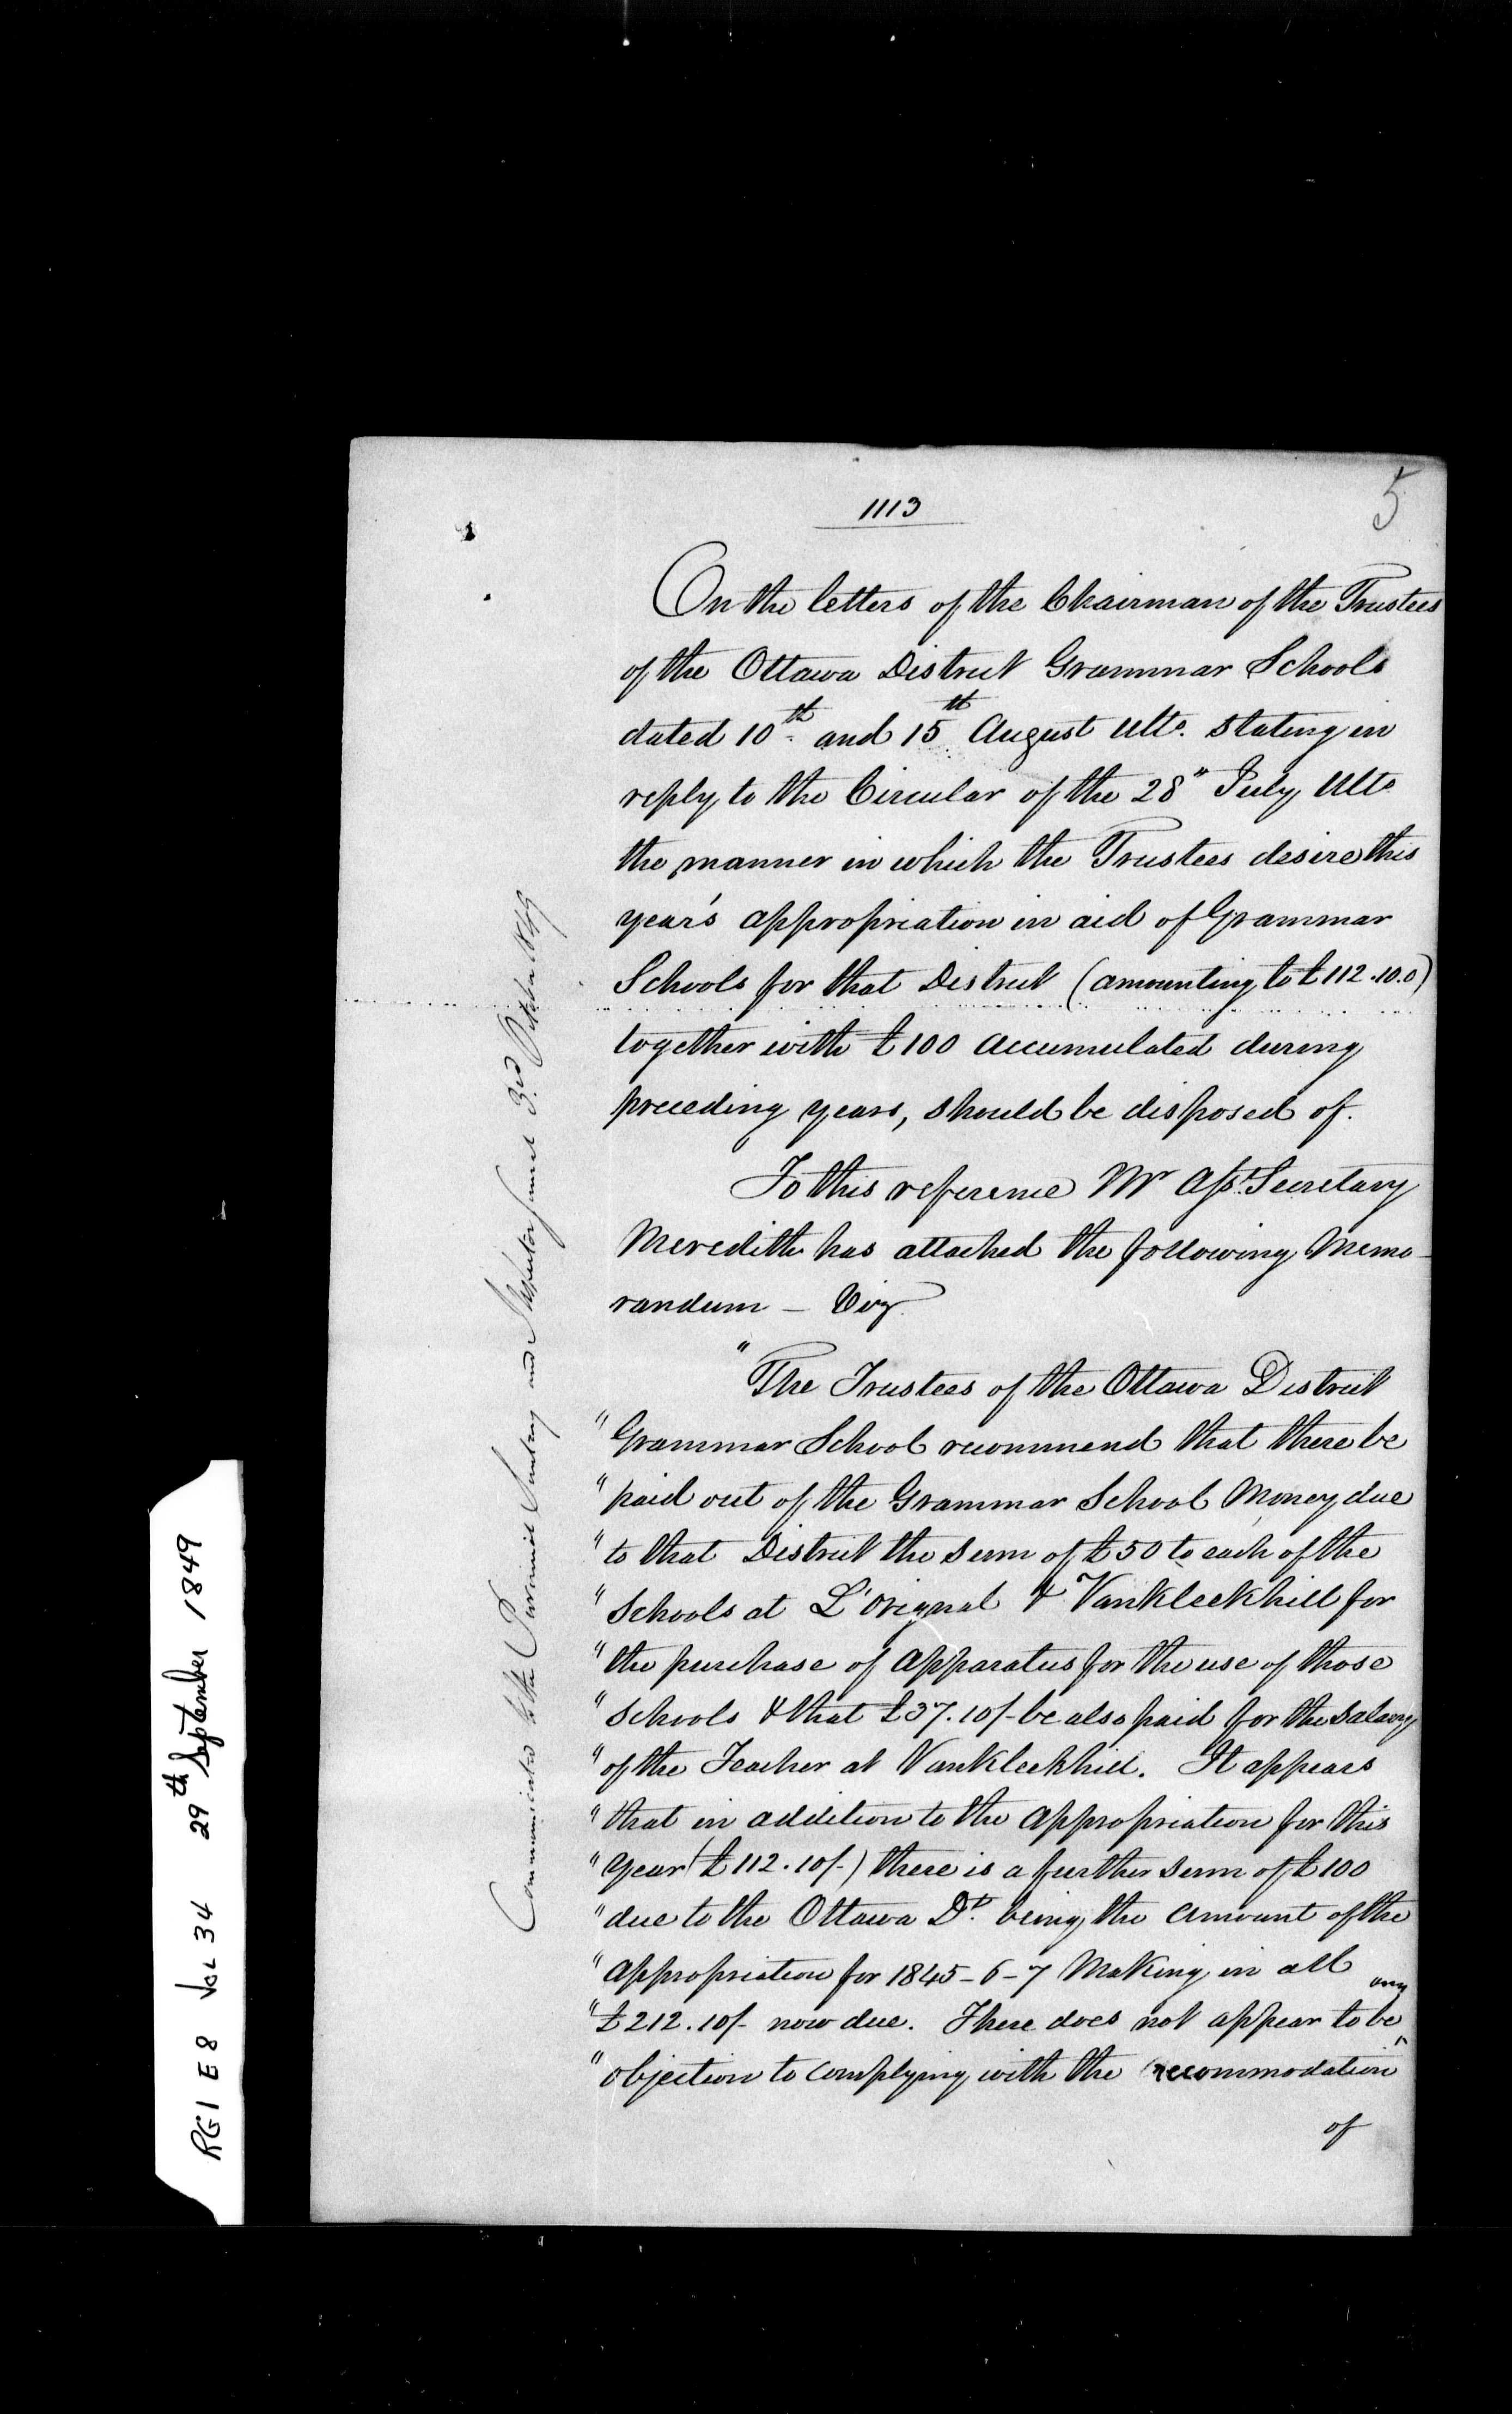 1113
5
On the letters of the Chairman of the Trustees
of the Ottawa District Grammar Schools
dated 10th. and 15th. August Ulto. stating in
reply to the Circular of the 28" July Ulto
the manner in which the Trustees desire this
year's appropriation in aid of Grammar
Schools for that District (amounting to £112.10.0)
together with £100 accumulated during
preceding years, should be disposed of.
To this reference Mr Asst. Secretary
Meredith has attached the following Memo-
randum – Viz
"The Trustees of the Ottawa District
"Grammar School recommend that there be
"paid out of the Grammar School Money due
"to that District the sum of £50 to each of the
"Schools at L'Orignal & Vankleekhill for
"the purchase of Apparatus for the use of those
"Schools & that £37.10/- be also paid for the Salary
"of the Teacher at Vankleekhill. It appears
"that in addition to the appropriation for this
"year (£112.10/-) there is a further sum of £100
"due to the Ottawa Dt. being the amount of the
"appropriation for 1845-6-7 Making in all
"£212.10/- now due. There does not appear to be any
"objection to complying with the recommodation"
of
Communicated to the Provincial Secretary and Inspector General 3rd October 1849
RG1 E8 Vol 34 29th September 1849